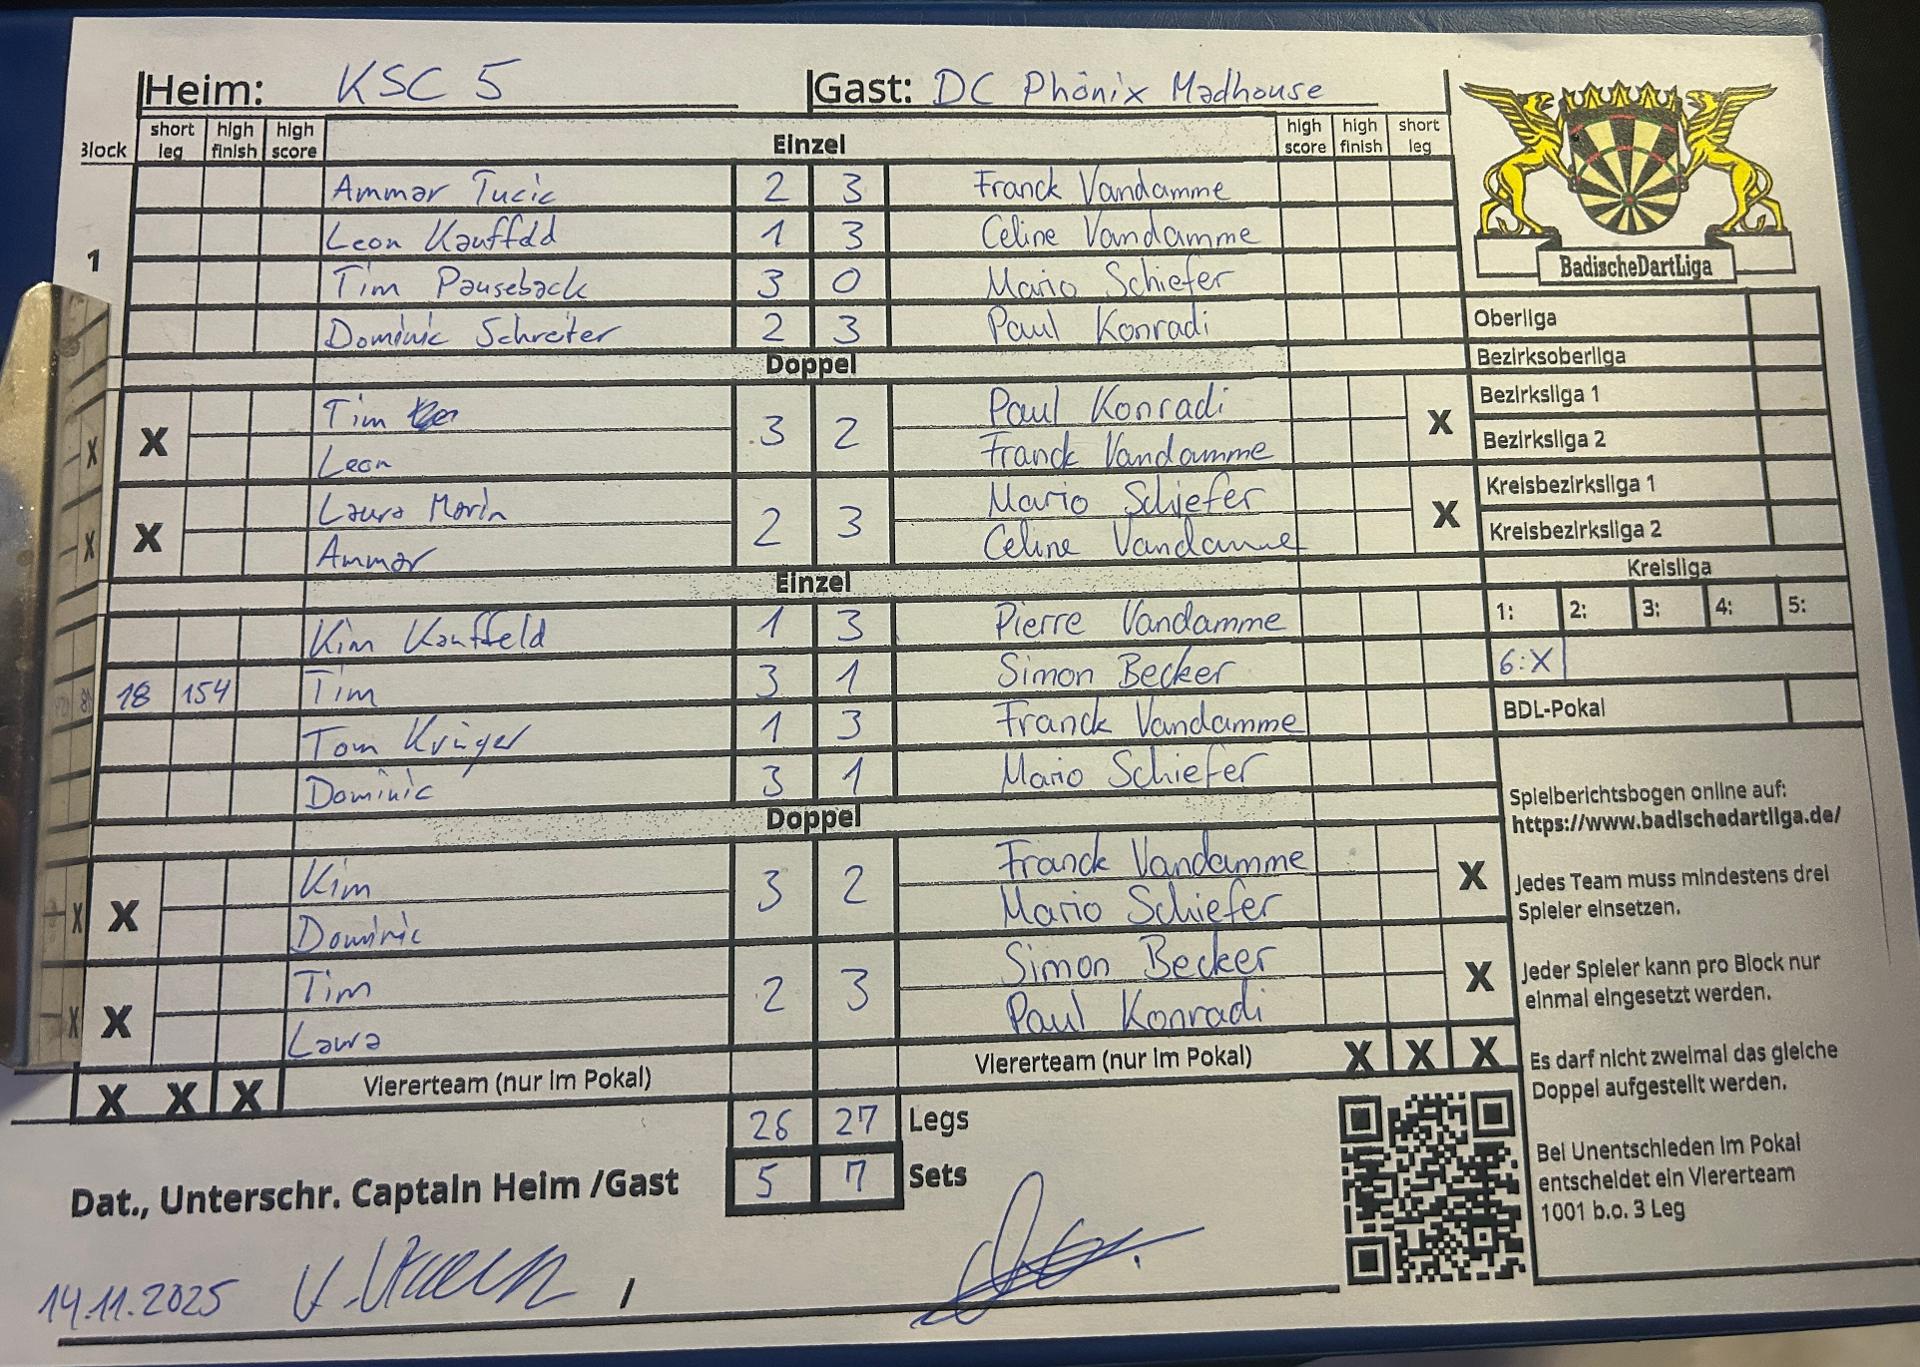 Heim: KSC 5 Gast: DC Phönix Madhouse
Block short leg high finish high score Einzel high score high finish short leg
1
Ammar Tucic 2 3 Franck Vandamme
Leon Kauffeld 1 3 Celine Vandamme
Tim Pauseback 3 0 Mario Schiefer
Dominic Schreiter 2 3 Paul Konradi
Doppel
X Tim 3 2 Paul Konradi X
Leon Franck Vandamme
X Laura Morin 2 3 Mario Schiefer X
Ammar Celine Vandamme
Einzel
Kim Kauffeld 1 3 Pierre Vandamme
18 154 Tim 3 1 Simon Becker
Tom Krüger 1 3 Franck Vandamme
Dominic 3 1 Mario Schiefer
Doppel
X Kim 3 2 Franck Vandamme X
Dominic Mario Schiefer
X Tim 2 3 Simon Becker X
Laura Paul Konradi
X X X Viererteam (nur im Pokal) Viererteam (nur im Pokal) X X X
26 27 Legs
5 7 Sets
Dat., Unterschr. Captain Heim /Gast
14.11.2025 /
BadischeDartLiga
Oberliga
Bezirksoberliga
Bezirksliga 1
Bezirksliga 2
Kreisbezirksliga 1
Kreisbezirksliga 2
Kreisliga
1: 2: 3: 4: 5:
6: X
BDL-Pokal
Spielberichtsbogen online auf:
https://www.badischedartliga.de/
Jedes Team muss mindestens drei
Spieler einsetzen.
Jeder Spieler kann pro Block nur
einmal eingesetzt werden.
Es darf nicht zweimal das gleiche
Doppel aufgestellt werden.
Bei Unentschieden im Pokal
entscheidet ein Viererteam
1001 b.o. 3 Leg